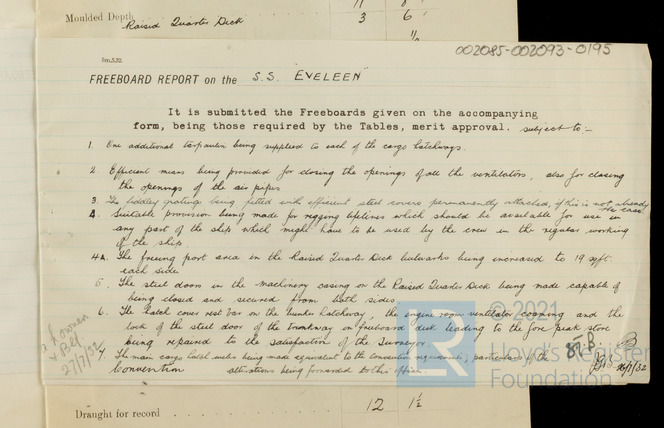 11 8
Moulded Depth Raised Quarter Deck 3 6
1/2
002085-002093-0195
FREEBOARD REPORT on the S.S. "EVELEEN"
It is submitted the Freeboards given on the accompanying
form, being those required by the Tables, merit approval. subject to:-
1. One additional tarpaulin being supplied to each of the cargo hatchways.
2. Efficient means being provided for closing the openings of all the ventilators, also for closing
the openings of the air pipes
3. The fiddley gratings being fitted with efficient steel covers permanently attached, if this is not already
the case.
4. Suitable provision being made for rigging lifelines which should be available for use in
any part of the ship which might have to be used by the crew in the regular working
of the ship
4A. The freeing port area in the Raised Quarter Deck bulwarks being increased to 19 sq ft.
each side.
5. The steel doors in the machinery casing on the Raised Quarter Deck being made capable of
being closed and secured from both sides
6. The hatch cover rest bar on the bunker hatchway, the engine room ventilator coaming and the
lock of the steel door of the trunkway on freeboard deck leading to the fore peak store
being repaired to the satisfaction of the Surveyor.
7. The main cargo hatch being made equivalent to the Convention requirements, particulars of the
Convention alterations being forwarded to this office
27/7/32
© 2021
Lloyd's Register
Foundation
LR
Draught for record . . . . 12 1½